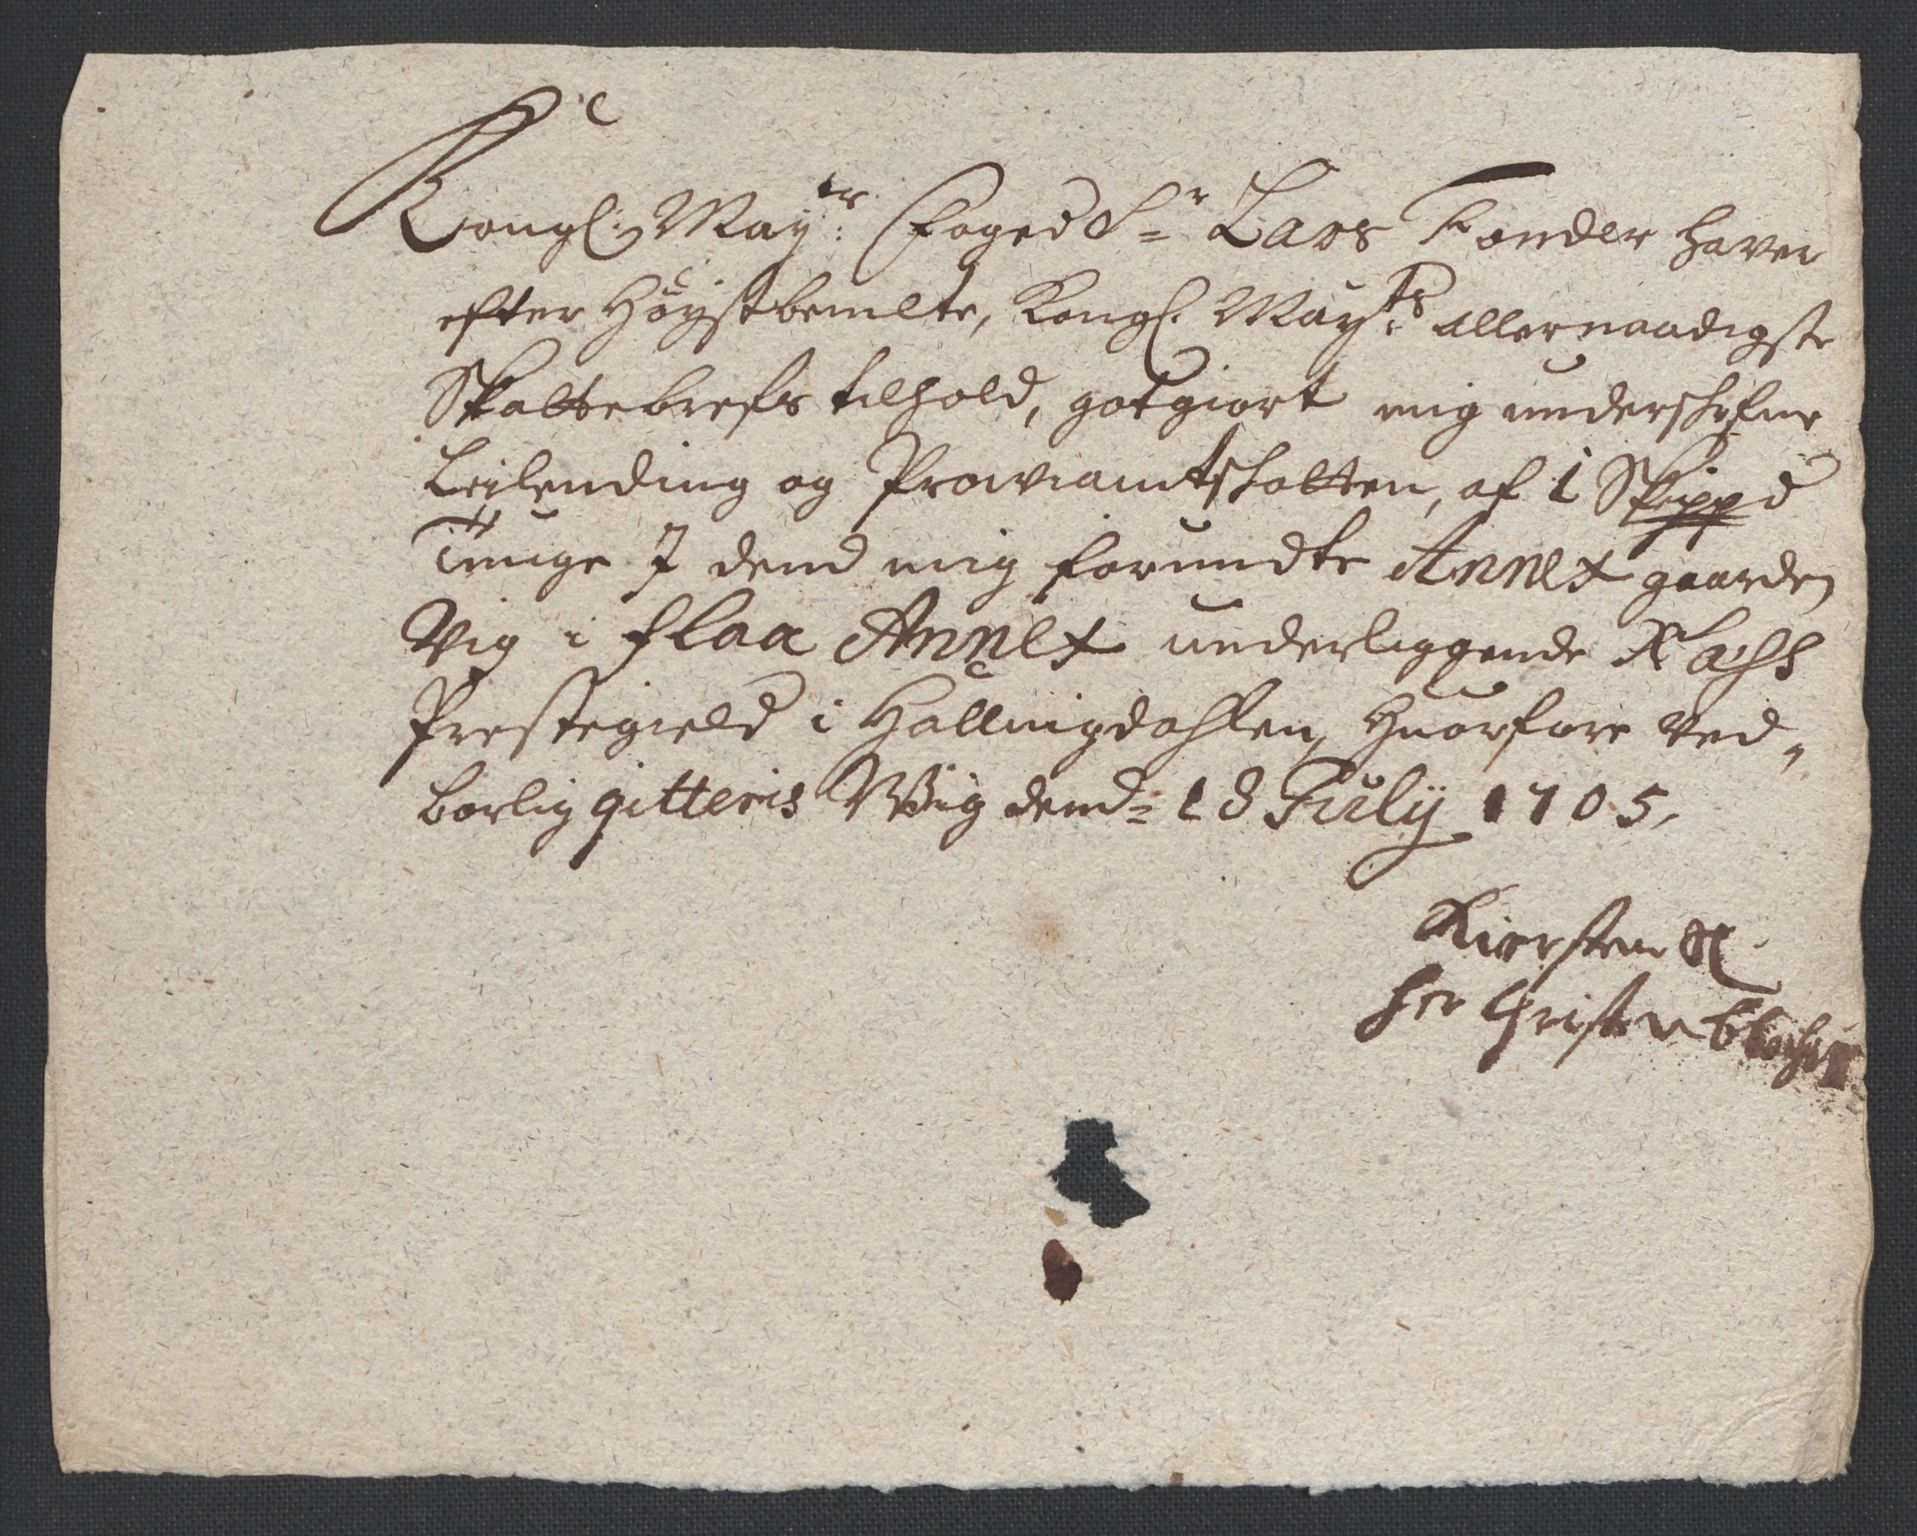 Kongl: May:ts Foged Sr Lars Tonder haver
efter Höystbemelte, Kongl. May:ts allernaadigste
Skattebrefs tilhold, gotgiort mig underschrfne
Leilending og Proviantschatten, af 1 Skippd
Tunge I dend mig forundte Annex gaarden
Vig i Flaa Annex underliggende Næhs
Prestegield i Hallingdahlen, Huorfore ved-
borlig qitteris Wiig dend= 18 July 1705,
Kiersten
her Christen